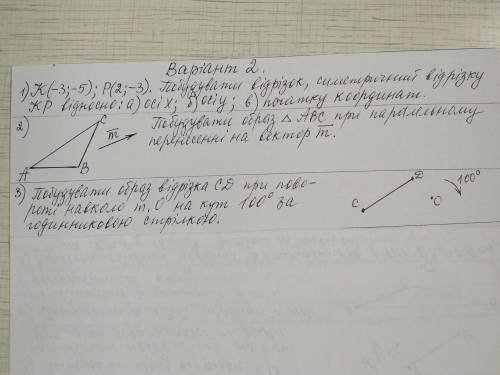 Варіант 2.
1) K(-3;-5); P(2;-3). Побудувати відрізок, симетричний відрізку
KP відносно: а) осі x; б) осі y; в) початку координат.
2) Побудувати образ △ ABC при паралельному
перенесенні на вектор m̅.
A B C m̅
3) Побудувати образ відрізка CD при пово-
роті навколо т. O на кут 100° за
годинниковою стрілкою.
C D O 100°